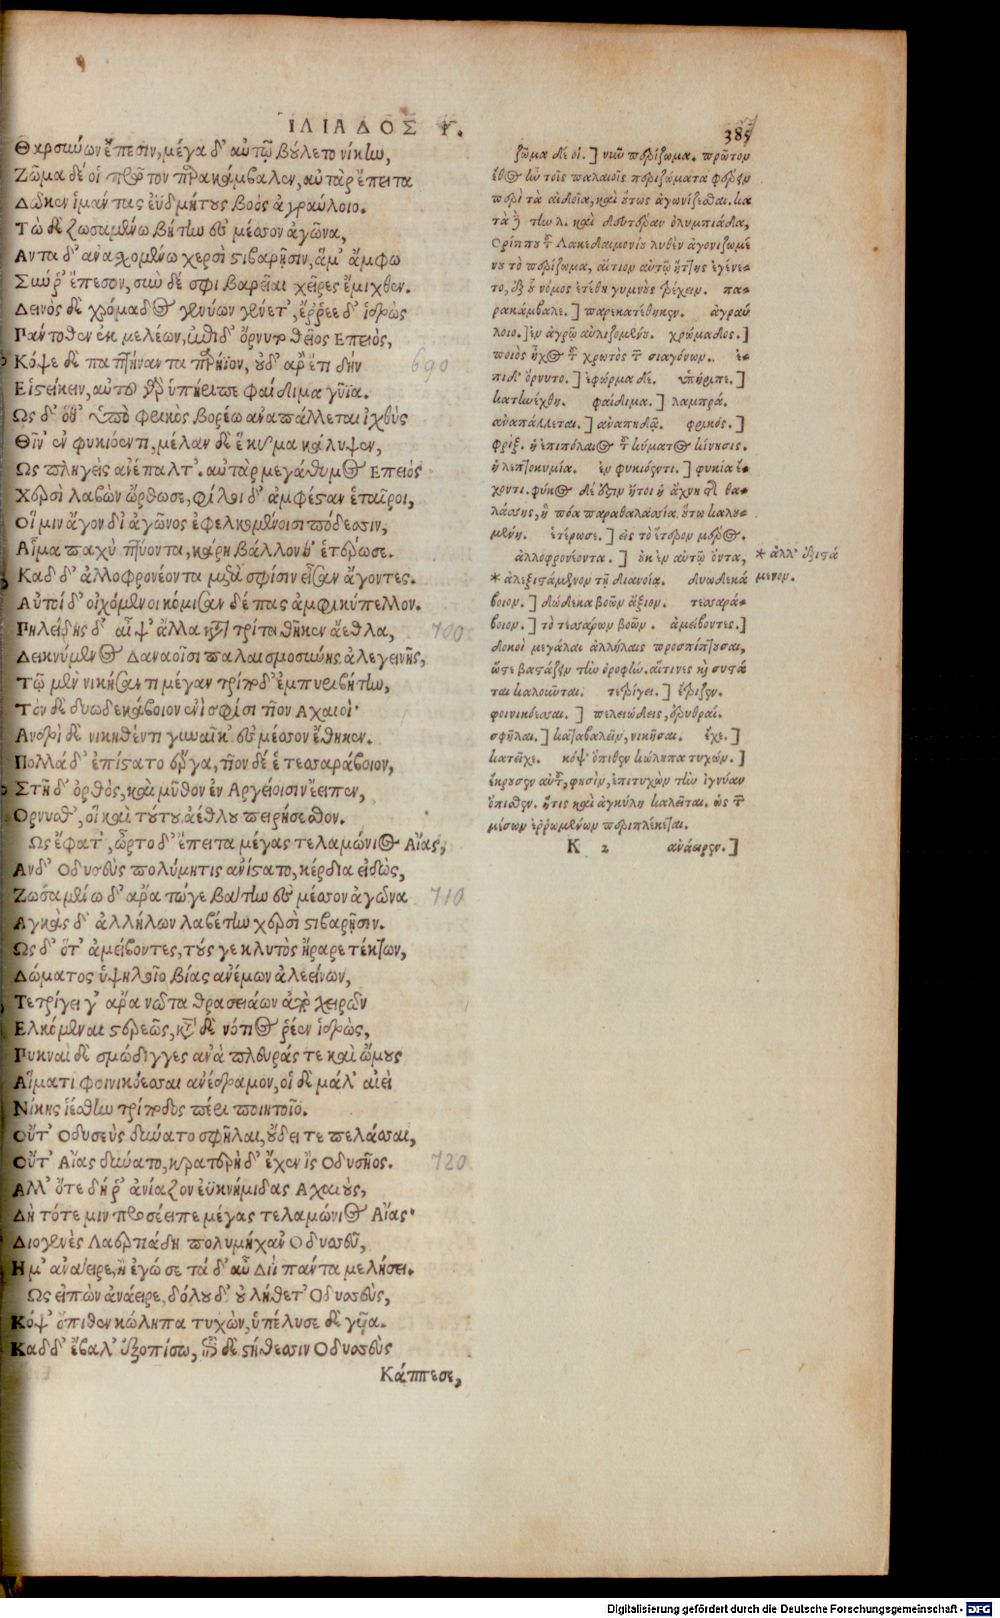 ἸΛΙΑΔΟΣ Ψ.
385
Θαρσύνων ἔπεσιν, μέγα δ' αὐτῷ βούλετο νίκην,
Ζῶμα δέ οἱ πρῶτον παρακάμβαλεν, αὐτὰρ ἔπειτα
Δῶκεν ἱμάντας ἐϋδμήτους βοὸς ἀγραύλοιο.
Τὼ δὲ ζωσαμένω βήτην ἐς μέσσον ἀγῶνα,
Αντα δ' ἀνασχομένω χερσὶ στιβαρῇσιν, ἅμ' ἄμφω
Σύν ῥ' ἔπεσον, σὺν δέ σφι βαρεῖαι χεῖρες ἔμιχθεν.
Δεινὸς δὲ χρόμαδος γενύων γένετ', ἔρρεε δ' ἱδρὼς
Πάντοθεν ἐκ μελέων, ἐπὶ δ' ὄρνυτο θεῖος Επειὸς,
Κόψε δὲ παπτήναντα παρήϊον, οὐδ' ἄρ' ἔτι δὴν
690
Εἱστήκειν, αὐτοῦ γὰρ ὑπήριπε φαίδιμα γυῖα.
Ως δ' ὅθ' ὑπὸ φρικὸς βορέω ἀναπάλλεται ἰχθὺς
Θῖν' ἐν φυκιόεντι, μέλαν δέ ἑ κῦμα κάλυψεν,
Ως πληγεὶς ἀνέπαλτ'. αὐτὰρ μεγάθυμος Επειὸς
Χερσὶ λαβὼν ὤρθωσε, φίλοι δ' ἀμφέσταν ἑταῖροι,
Οἵ μιν ἄγον δι' ἀγῶνος ἐφελκομένοισι πόδεσσιν,
Αἷμα παχὺ πτύοντα, κάρη βάλλονθ' ἑτέρωσε.
Καδ δ' ἀλλοφρονέοντα μετὰ σφίσιν εἷσαν ἄγοντες.
Αὐτοὶ δ' οἰχόμενοι κόμισαν δέπας ἀμφικύπελλον.
Πηλείδης δ' αἶψ' ἄλλα κατὰ τρίτα θῆκεν ἄεθλα,
700
Δεικνύμενος Δαναοῖσι παλαισμοσύνης ἀλεγεινῆς,
Τῷ μὲν νικήσαντι μέγαν τρίποδ' ἐμπυριβήτην,
Τὸν δὲ δυωδεκάβοιον ἐνὶ σφίσι τῖον Αχαιοί·
Ανδρὶ δὲ νικηθέντι γυναῖκ' ἐς μέσσον ἔθηκεν.
Πολλὰ δ' ἐπίστατο ἔργα, τῖον δέ ἑ τεσσαράβοιον,
Στῆ δ' ὀρθὸς, καὶ μῦθον ἐν Αργείοισιν ἔειπεν,
Ορνυσθ', οἳ καὶ τούτου ἀέθλου πειρήσεσθον.
Ως ἔφατ', ὦρτο δ' ἔπειτα μέγας τελαμώνιος Αἴας,
Ανδ' Οδυσεὺς πολύμητις ἀνίστατο, κέρδια εἰδὼς,
Ζωσαμένω δ' ἄρα τώγε βάτην ἐς μέσσον ἀγῶνα
710
Αγκὰς δ' ἀλλήλων λαβέτην χερσὶ στιβαρῇσιν.
Ως δ' ὅτ' ἀμείβοντες, τούς γε κλυτὸς ἤραρε τέκτων,
Δώματος ὑψηλοῖο βίας ἀνέμων ἀλεείνων,
Τετρίγει γ' ἄρα νῶτα θρασειάων ἀπὸ χειρῶν
Ελκόμεναι στερεῶς, κατὰ δὲ νότιος ῥέεν ἱδρὼς,
Πυκναὶ δὲ σμώδιγγες ἀνὰ πλευράς τε καὶ ὤμους
Αἵματι φοινικόεσσαι ἀνέδραμον, οἱ δὲ μάλ' αἰεὶ
Νίκης ἱέσθην τρίποδος πέρι ποιητοῖο.
Οὔτ' Οδυσεὺς δύνατο σφῆλαι, οὔδει τε πελάσσαι,
Οὔτ' Αἴας δύνατο, κρατερὴ δ' ἔχεν ἲς Οδυσῆος.
720
Αλλ' ὅτε δή ῥ' ἀνίαζον ἐϋκνήμιδας Αχαιοὺς,
Δὴ τότε μιν προσέειπε μέγας τελαμώνιος Αἴας·
Διογενὲς Λαερτιάδη πολυμήχαν' Οδυσσεῦ,
Η μ' ἀνάειρε, ἢ ἐγώ σε τὰ δ' αὖ Διῒ πάντα μελήσει.
Ως εἰπὼν ἀνάειρε, δόλου δ' οὐ λήθετ' Οδυσσεὺς,
Κόψ' ὄπιθεν κώληπα τυχὼν, ὑπέλυσε δὲ γυῖα.
Καδ δ' ἔβαλ' ἐξοπίσω, ἐπὶ δὲ στήθεσσιν Οδυσσεὺς
Κάππεσε,
ζῶμα δέ οἱ.] νῦν περίζωμα. πρῶτον
ἔθος ἦν τοῖς παλαιοῖς περιζώματα φορεῖν
περὶ τὰ αἰδοῖα, καὶ οὕτως ἀγωνίζεσθαι. κα
τὰ δὲ τὴν λ. καὶ δευτέραν ὀλυμπιάδα,
Ορίππου τοῦ Λακεδαιμονίου λυθὲν ἀγωνιζομέ
νου τὸ περίζωμα, αἴτιον αὐτῷ ἥττης ἐγένε-
το, ἐξ οὗ νόμος ἐτέθη γυμνοὺς τρέχειν. πα-
ρακάμβαλε.] παρεκατέθηκεν. ἀγραύ
λοιο.] ἐν ἀγρῷ αὐλιζομένου. χρόμαδος.]
ποιὸς ἦχος τοῦ χρωτὸς τῶν σιαγόνων. ἐ-
πὶ δ' ὄρνυτο.] ἐφώρμα δέ. ὑπήριπε.]
κατηνέχθη. φαίδιμα.] λαμπρά.
ἀναπάλλεται.] ἀναπηδᾷ. φρικός.]
φρὶξ. ἡ ἐπιπόλαιος τοῦ κύματος κίνησις.
ἡ λεπτοκυμία. ἐν φυκιόεντι.] φυκία ἔ-
χοντι. φῦκος δέ ἐστιν ἤτοι ἡ ἄχνη τῆς θα-
λάσσης, ἢ πόα παραθαλασσία οὕτω καλου-
μένη. ἑτέρωσε.] εἰς τὸ ἕτερον μέρος.
ἀλλοφρονέοντα.] οὐκ ἐν αὐτῷ ὄντα,
* ἀλεξιστάμενον τῇ διανοίᾳ. δυωδεκά
βοιον.] δώδεκα βοῶν ἄξιον. τεσσαρά-
βοιον.] τὸ τεσσάρων βοῶν. ἀμείβοντες.]
δοκοὶ μεγάλαι ἀλλήλαις προσπίπτουσαι,
ὥστε βαστάζειν τὴν ὀροφὴν. αἵτινες καὶ συστά
ται καλοῦνται. τετρίγει.] ἔτριζεν.
φοινικόεσσαι.] πελειώδεις, ἐρυθραί.
σφῆλαι.] καταβαλεῖν, νικῆσαι. ἔχε.]
κατεῖχε. κόψ' ὄπιθεν κώληπα τυχών.]
ἔκρουσεν αὐτοῦ, φησὶν, ἐπιτυχὼν τὴν ἰγνύαν
ὄπισθεν. ἥτις καὶ ἀγκύλη καλεῖται. ὡς τῶν
μέσων ἐρρωμένων περιπλέκεται.
K 2 ἀνάειρεν.]
* ἀλλ' ἐξιστά
μενον.
Digitalisierung gefördert durch die Deutsche Forschungsgemeinschaft - DFG